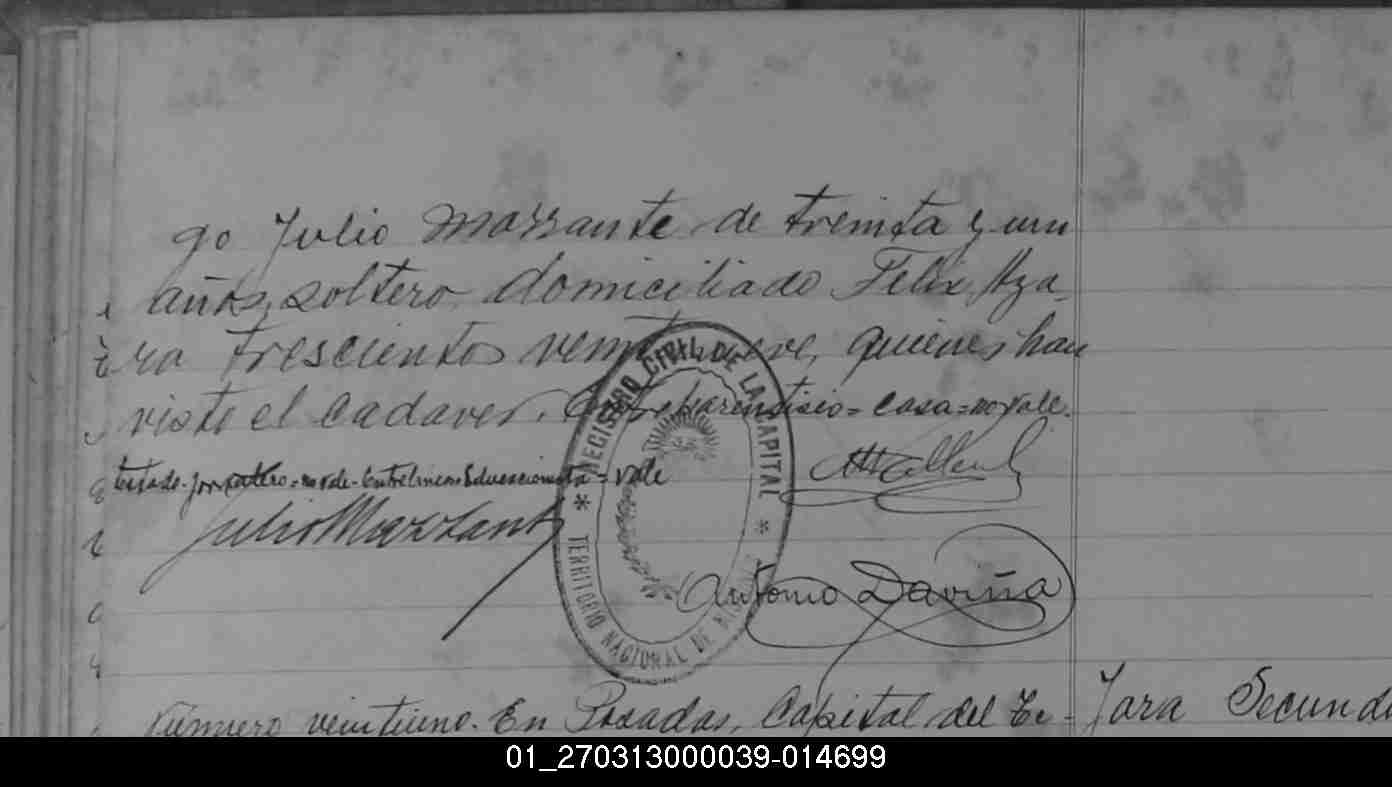 go Julio Mazzante de treinta y un
años, soltero, domiciliado Felix Aza-
ra trescientos veintinueve, quienes han
visto el cadaver. Entre parentisis = casa = no vale.
testado = no vale = Entrelineas Educacionista = vale
Julio Mazzanti
Antonio Daviña
REGISTRO CIVIL DE LA CAPITAL
* TERRITORIO NACIONAL DE *
Número veintiuno. En Posadas, Capital del Te-
Jara Secundi
01_270313000039-014699